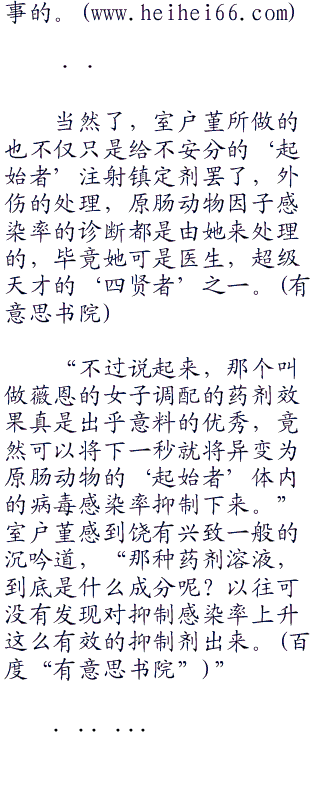 事的。(www.heihei66.com)
. .
当然了，室户堇所做的
也不仅只是给不安分的‘起
始者’注射镇定剂罢了，外
伤的处理，原肠动物因子感
染率的诊断都是由她来处理
的，毕竟她可是医生，超级
天才的‘四贤者’之一。(有
意思书院)
“不过说起来，那个叫
做薇恩的女子调配的药剂效
果真是出乎意料的优秀，竟
然可以将下一秒就将异变为
原肠动物的‘起始者’体内
的病毒感染率抑制下来。”
室户堇感到饶有兴致一般的
沉吟道，“那种药剂溶液，
到底是什么成分呢？以往可
没有发现对抑制感染率上升
这么有效的抑制剂出来。(百
度“有意思书院”)”
. .. ...